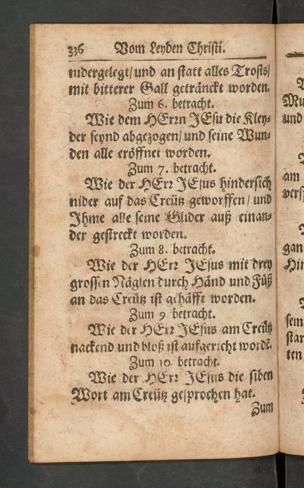 336 Vom Leyden Christi.
nidergelegt/ und an statt alles Trosts/
mit bitterer Gall geträncket worden.
Zum 6. betracht.
Wie dem HErrn JEsu die Kley-
der seynd abgezogen/ und seine Wun-
den alle eröffnet worden.
Zum 7. betracht.
Wie der HErr JEsus hindersich
nider auf das Creütz geworffen/ und
Jhme alle seine Glider auß einan-
der gestreckt worden.
Zum 8. betracht.
Wie der HErr JEsus mit drey
grossen Näglen durch Händ und Füß
an das Creütz ist gehäfft worden.
Zum 9 betracht.
Wie der HErr JEsus am Creütz
nackend und bloß ist aufgericht wordē.
Zum 10. betracht.
Wie der HErr JEsus die siben
Wort am Creütz gesprochen hat.
Zum